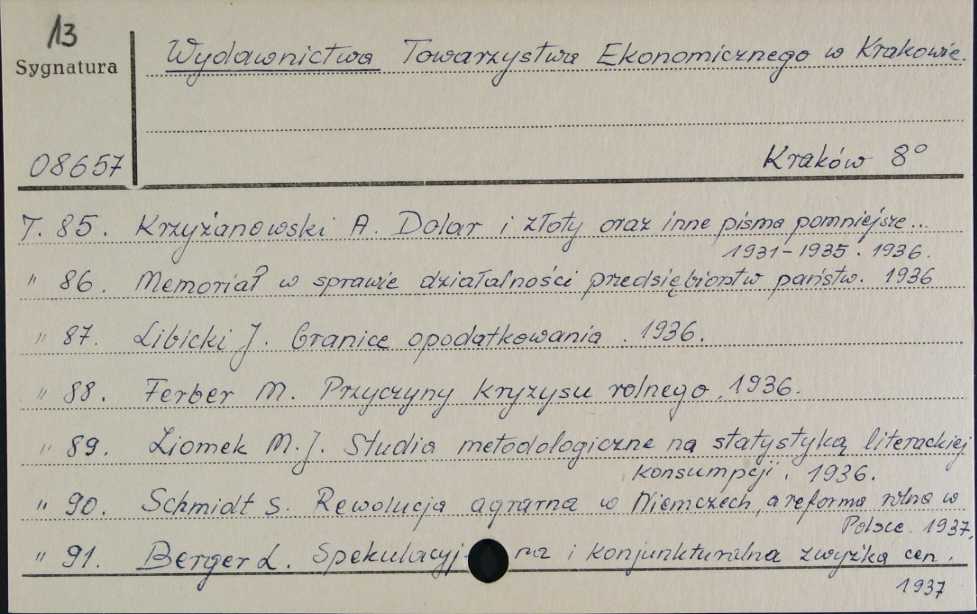 13
Sygnatura
Wydawnictwa Towarzystwa Ekonomicznego w Krakowie.
08657
Kraków 8°
T. 85. Krzyżanowski A. Dolar i złoty oraz inne pisma pomniejsze...
1931-1935. 1936.
" 86. Memoriał w sprawie działalności przedsiębiorstw państw. 1936
" 87. Libicki J. Granice opodatkowania. 1936.
" 88. Ferber M. Przyczyny kryzysu rolnego, 1936.
" 89. Ziomek M.J. Studia metodologiczne na statystyką literackiej
konsumpcji. 1936.
" 90. Schmidt S. Rewolucja agrarna w Niemczech, a reforma rolna w
Polsce. 1937,
" 91. Berger L. Spekulacyj- na i konjunkturalna zwyżka cen.
1937